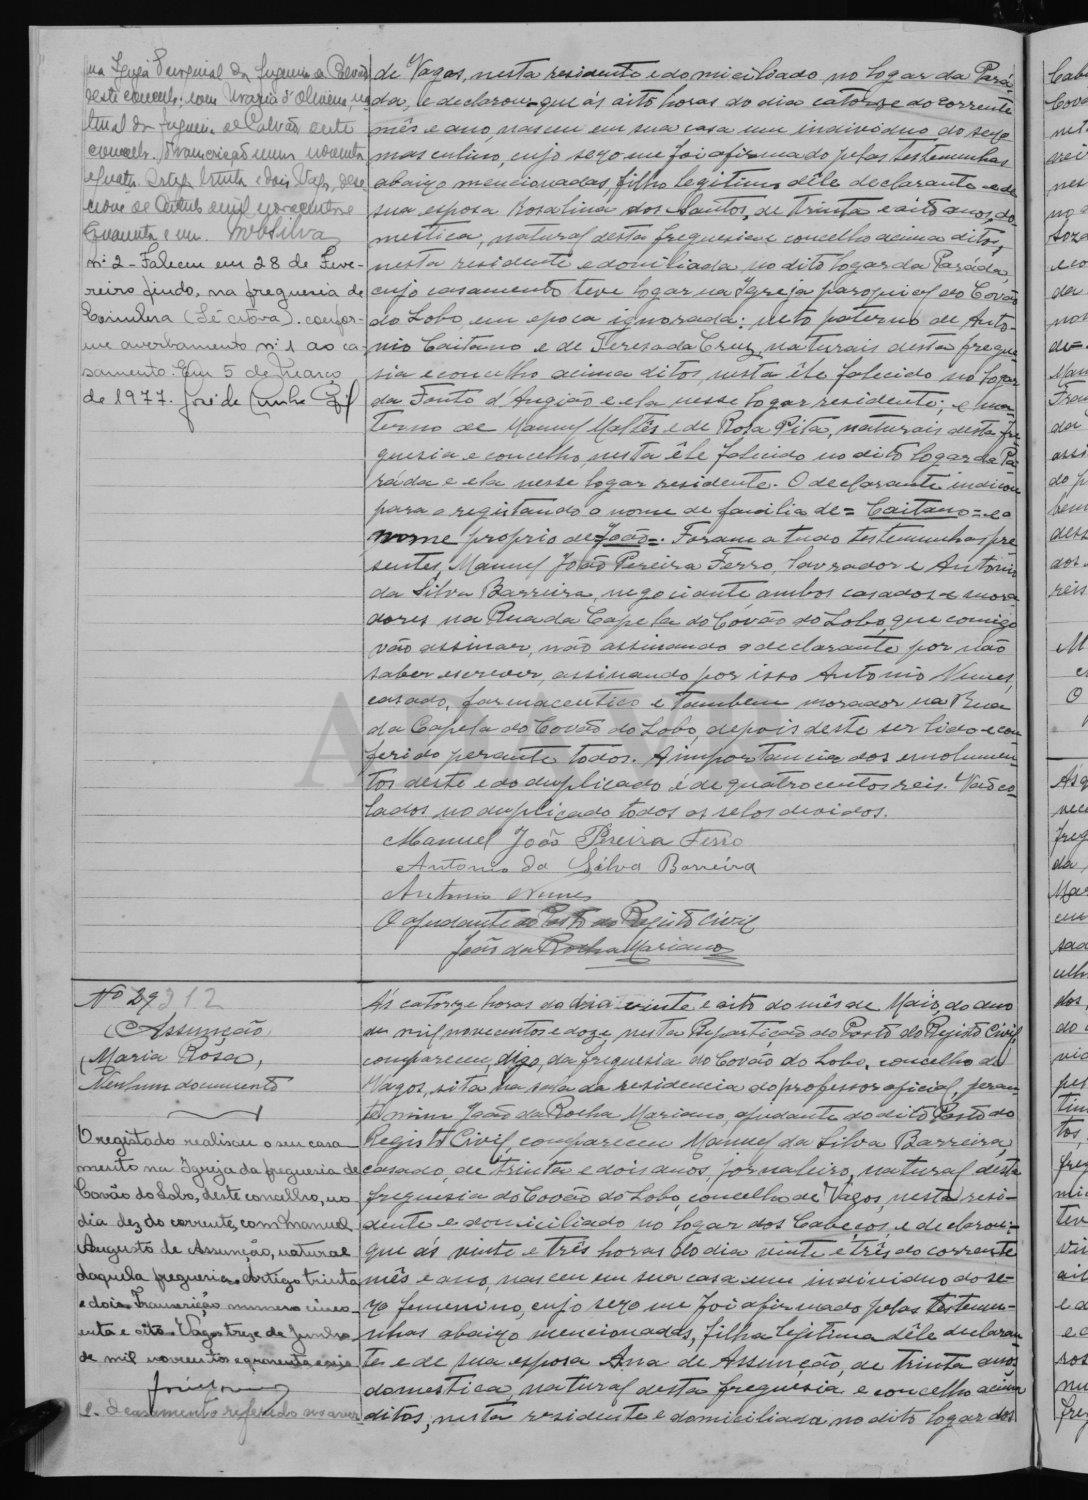 na Igreja Paroquial da freguesia de Calvão
deste concelho, com Maria d'Oliveira, na
tural da freguesia de Calvão deste
concelho. Transcrição numero noventa
e quatro. Artigo trinta e dois. Vagos, deze
nove de Outubro mil novecentos e
quarenta e um. MdaSilva
nº 2 - Faleceu em 28 de Feve-
reiro findo, na freguesia de
Coimbra (Sé Nova). confor-
me averbamento nº 1 ao ca-
samento. Em 5 de Março
de 1977. José da Cunha Gil
de Vagos, nesta residente e domiciliado no logar da Pará-
da, e declarou que ás oito horas do dia catorze do corrente
mês e ano, nasceu em sua casa um individuo do sexo
masculino, cujo sexo me foi afirmado pelas testemunhas
abaixo mencionadas, filho legitimo dêle declarante e de
sua esposa Rosalina dos Santos, de trinta e oito anos, do-
mestica, natural desta freguesia e concelho acima ditos,
nesta residente e domiciliada no dito logar da Paráda,
cujo casamento teve logar na Igreja paroquial do Covão
do Lobo, em epoca ignorada; neto paterno de Anto-
nio Caitano e de Teresa da Cruz, naturais desta fregue-
sia e concelho acima ditos, nesta êle falecido no logar
da Fonte d'Angião e ela nesse logar residente; e ma-
terno de Manuel Maltês e de Rosa Pita, naturais desta fre-
guesia e concelho, nesta êle falecido no dito logar da Pa-
ráda e ela nesse logar residente. O declarante indicou
para o registando o nome de familia de = Caitano = e o
nome proprio de = João =. Foram a tudo testemunhas pre-
sentes, Manuel João Pereira Ferro, lavrador e Antonio
da Silva Barreira, negociante, ambos casados e mora-
dores na Rua da Capela do Covão do Lobo, que comigo
vão assinar, não assinando o declarante por não
saber escrever, assinando por isso Antonio Nunes,
casado, farmaceutico e tambem morador na Rua
da Capela do Covão do Lobo, depois deste ser lido e con-
ferido perante todos. A importancia dos emolumen-
tos deste e do duplicado é de quatrocentos reis. Vão co-
lados no duplicado todos os selos devidos.
Manuel João Pereira Ferro
Antonio da Silva Barreira
Antonio Nunes
O ajudante do Posto do Registo Civil
João da Rocha Mariano
Nº 29 312
Assunção,
Maria Rosa,
Nenhum documento
O registado realisou o seu casa-
mento na Igreja da freguesia de
Covão do Lobo, deste concelho, no
dia dez do corrente, com Manuel
Augusto de Assunção, natural
daquela freguesia. Artigo trinta
e dois. Transcrição numero cinco-
enta e oito. Vagos treze de Junho
de mil novecentos e quarenta e seis
2- O casamento referido no aver-
Ás catorze horas do dia vinte e oito do mês de Maio do ano
de mil novecentos e doze, nesta Repartição do Posto do Registo Civil,
compareceu, digo, da freguesia do Covão do Lobo, concelho de
Vagos, sita na casa da residencia do professor oficial, peran-
te mim João da Rocha Mariano, ajudante do dito Posto do
Registo Civil, compareceu Manuel da Silva Barreira,
casado, de trinta e dois anos, jornaleiro, natural desta
freguesia do Covão do Lobo, concelho de Vagos, nesta resi-
dente e domiciliado no logar dos Cabeços, e declarou:-
que ás vinte e três horas do dia vinte e três do corrente
mês e ano, nasceu em sua casa um individuo do se-
xo femenino, cujo sexo me foi afirmado pelas testemu-
nhas abaixo mencionadas, filha legitima dêle declaran-
te e de sua esposa Ana de Assunção, de trinta anos,
domestica, natural desta freguesia e concelho acima
ditos, nesta residente e domiciliada no dito logar dos